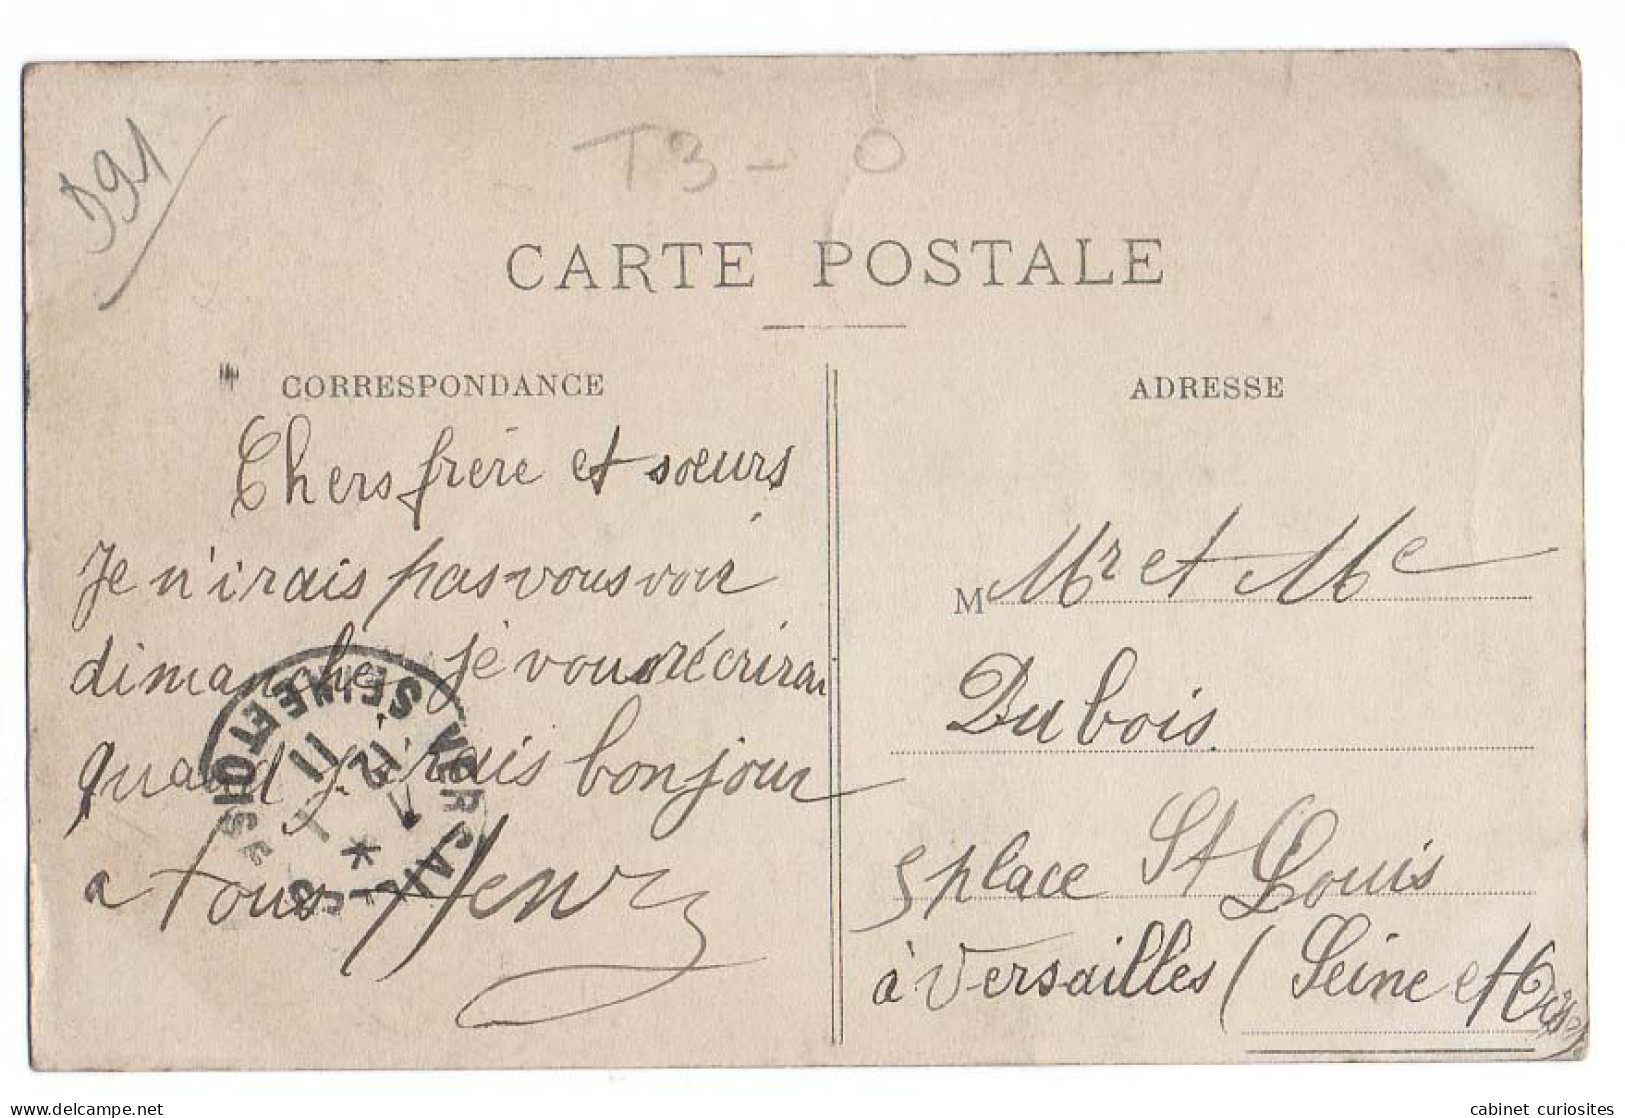 D91
T3 - O
CARTE POSTALE
CORRESPONDANCE
Chers frère et sœurs
Je n'irais pas vous voir
dimanche je vous récrirai
quand j'irais bonjour
a tous Henry
VERSAILLES
12
11
SEINE ET OISE
ADRESSE
M Mr et Me
Dubois
5 place St Louis
à Versailles (Seine et Oise)
www.delcampe.net
cabinet curiosites